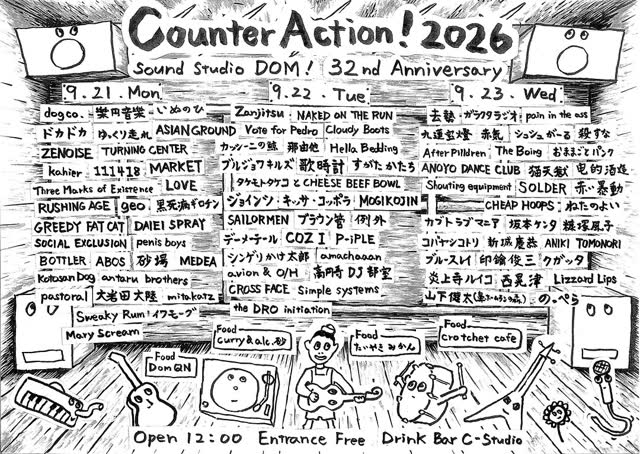 Counter Action! 2026
Sound Studio DOM! 32nd Anniversary
9.21.Mon
dogco. 楽円音楽 いぬのひ
ドカドカ ゆっくり走れ ASIANGROUND
ZENOISE TURNING CENTER
kahier 111418 MARKET
Three Marks of Existence LOVE
RUSHING AGE geo. 黒死病ギロチン
GREEDY FAT CAT DAIEI SPRAY
SOCIAL EXCLUSION penis boys
BOTTLER ABOS 砂場 MEDEA
Kotosan Dog antaru brothers
pastoral 大岩田大陸 mitakatz
Sweaky Rum! イフモーグ
Mary Scream
9.22.Tue
Zanjitsu NAKED ON THE RUN
Vote for Pedro Cloudy Boots
カッシーニの鯨 那由他 Hella Bedding
ブルジョワキルズ 歌時計 すがたかたち
タケモトタケコとCHEESE BEEF BOWL
ジョインソ・キッサ・コッポラ MOGIKOJIN
SAILORMEN ブラウン管 例外
デーメテール COZI P-iPLE
シンゲリかけ太郎 amachaaan
avion & O/H 高円寺DJ部室
CROSS FACE Simple systems
the DRO initiation
9.23.Wed
去勢 ガラクタラジオ pain in the ass
赤気 シュシュがーる 殺すな
After Pilldren The Boing おままごとパンク
ANOYO DANCE CLUB 猫天獄
Shouting equipment SOLDER 赤い暴動
CHEAP HOOPS ねたのよい
カブトラブマニア 坂本ケンタ 糠塚凧子
コバヤシコトリ 新城慶慈 ANIKI TOMONORI
ブルースレイ 印鑰俊三 クガッタ
炎上寺ルイコ 西晃津 Lizzard Lips
山下健太 の。ぺら
Food
curry&alc.砂
Food
たいやきみかん
Food
crotchet cafe
Food
DomQN
Open 12:00 Entrance Free Drink Bar C-Studio